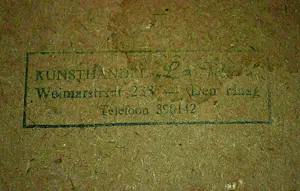 KUNSTHANDEL
Weimarstraat — Den Haag
Telefoon 390142